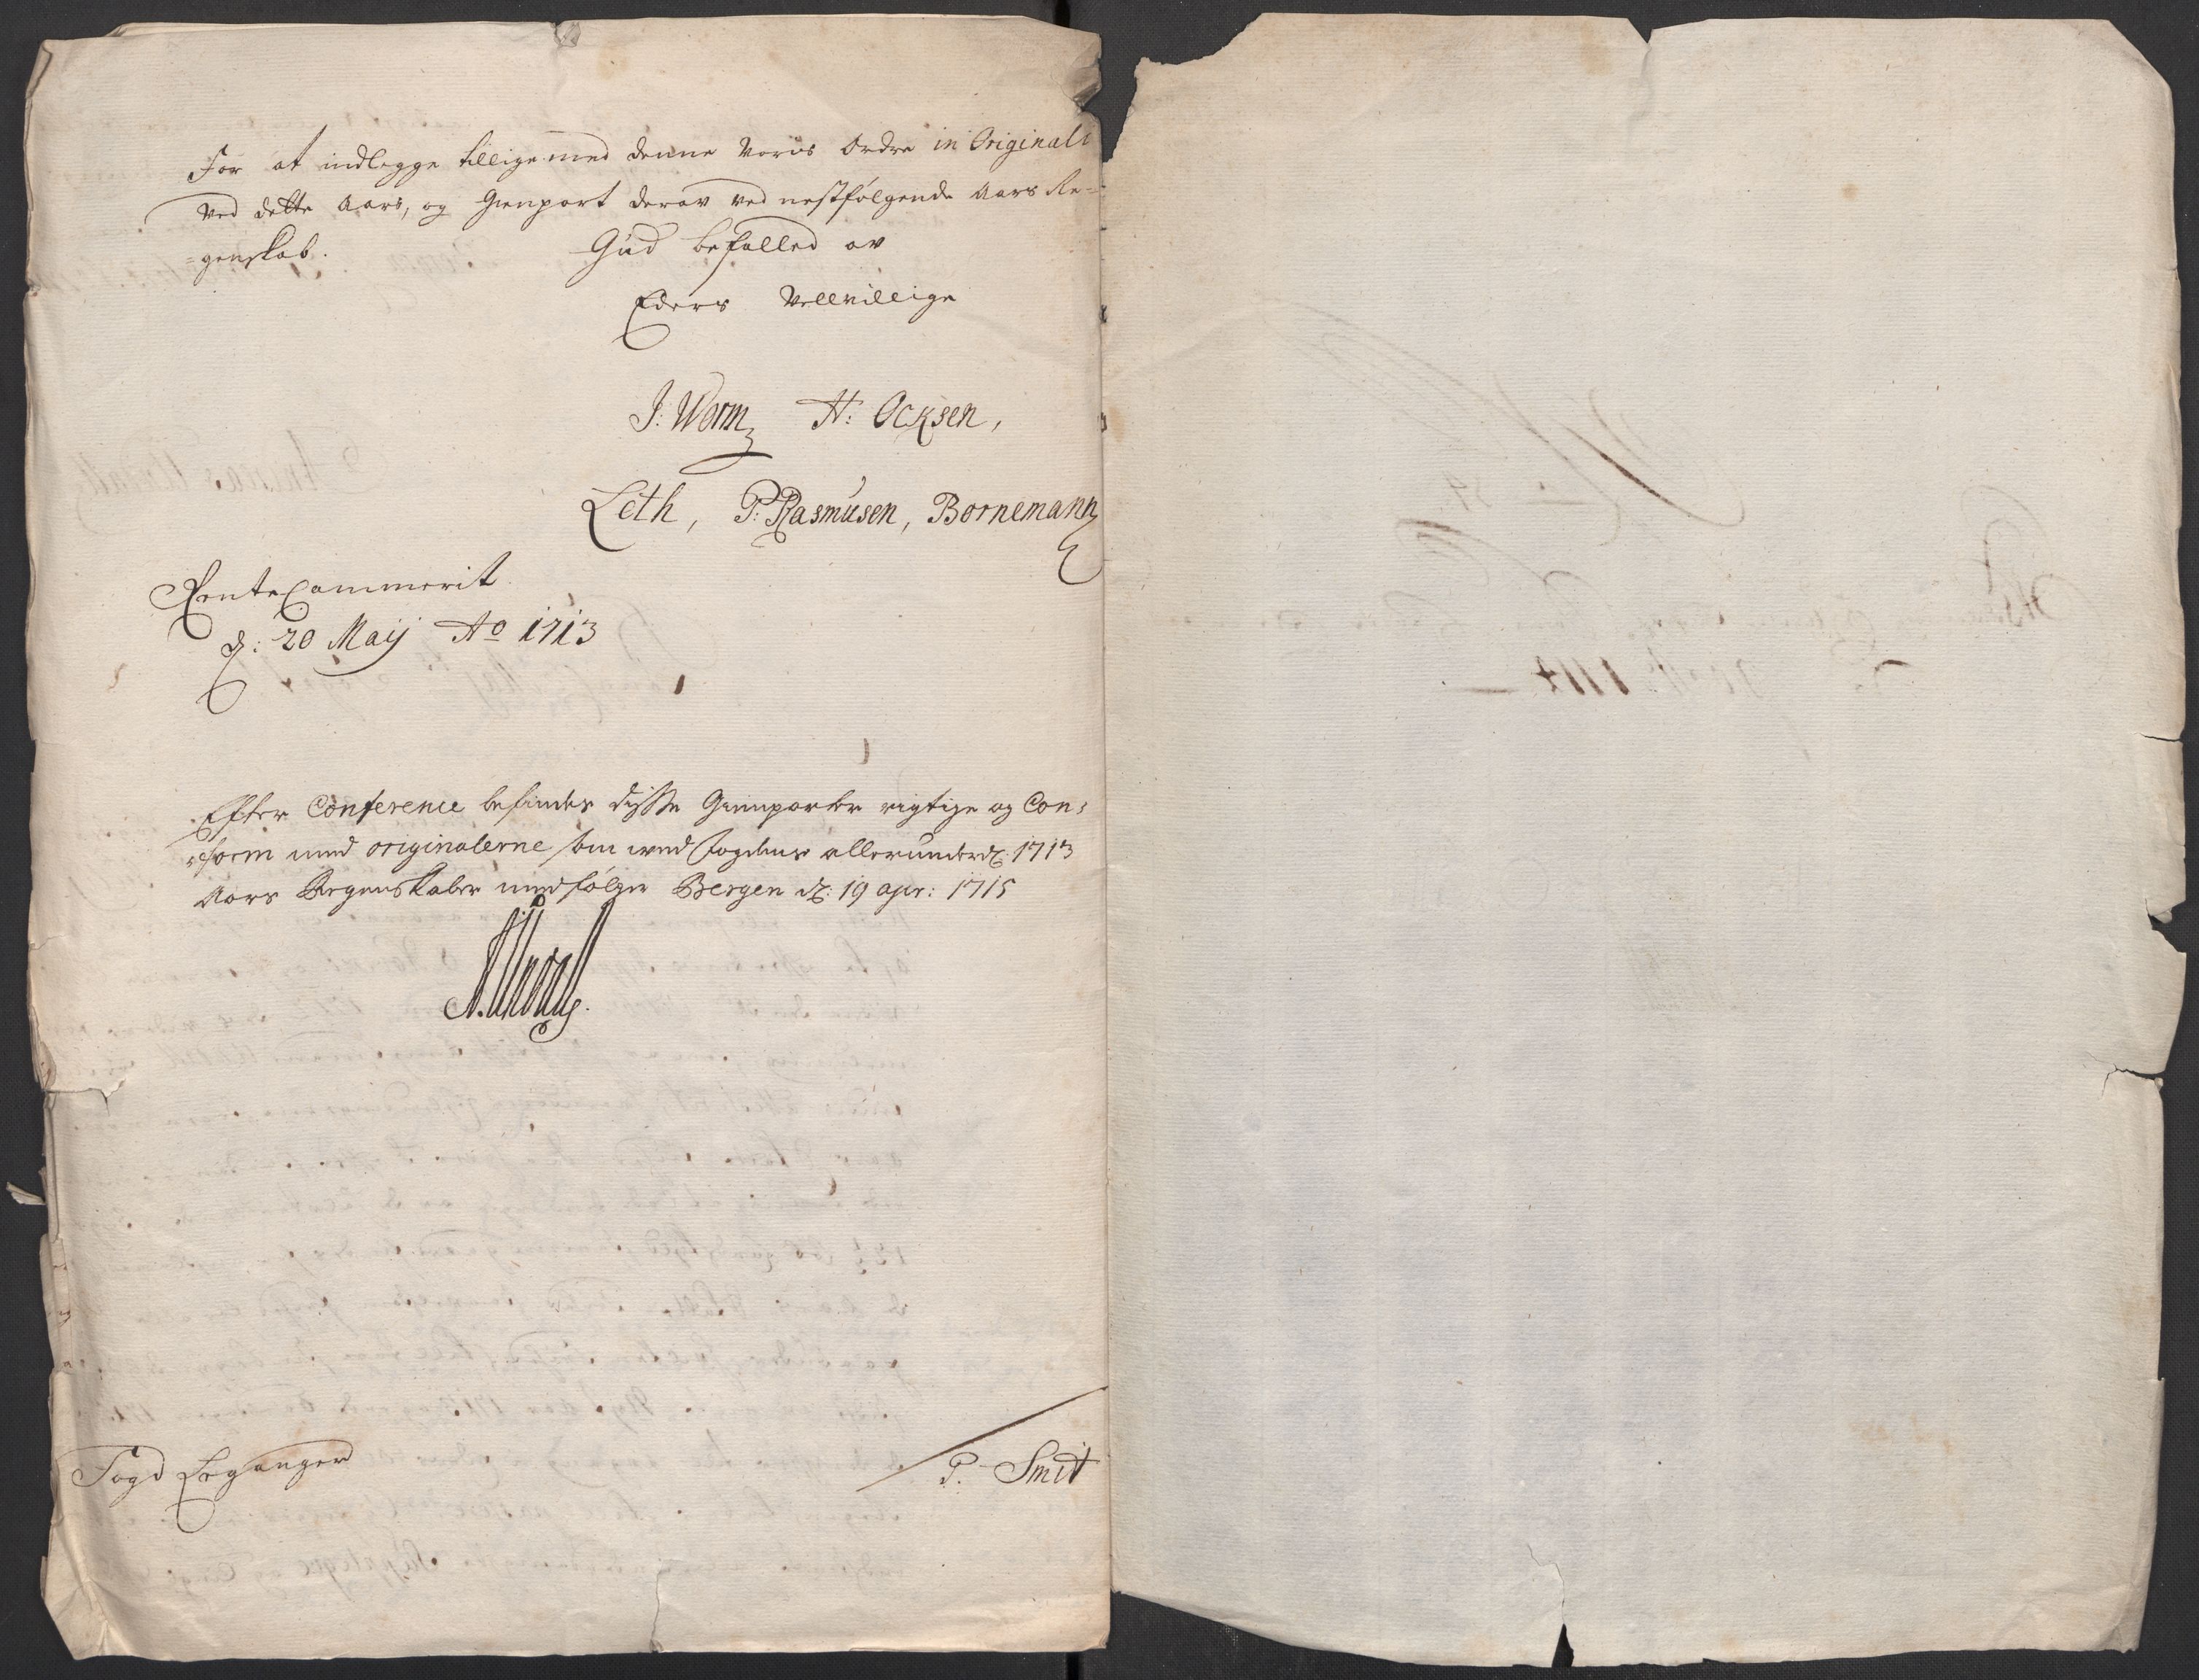 For at indlegge tillige med denne Voris Ordre in Originali
Ved dette Aars, og Gienpart derav ved nestfølgende Aars Re=
=genskab. Gud befalled av
Eders Velvillige
J: Worm H: Ocksen,
Leth, P: Rasmusen, Bornemann
RenteCammerit
d: 20 Maij Ao 1713
Efter Conference befindes disse Gienparter rigtige og Con=
=form med originalerne som ved fogdens allerunderd: 1713
Aars Regenskaber medfølger Bergen d: 19 apr: 1715
Fogd Leganger
P. Smit